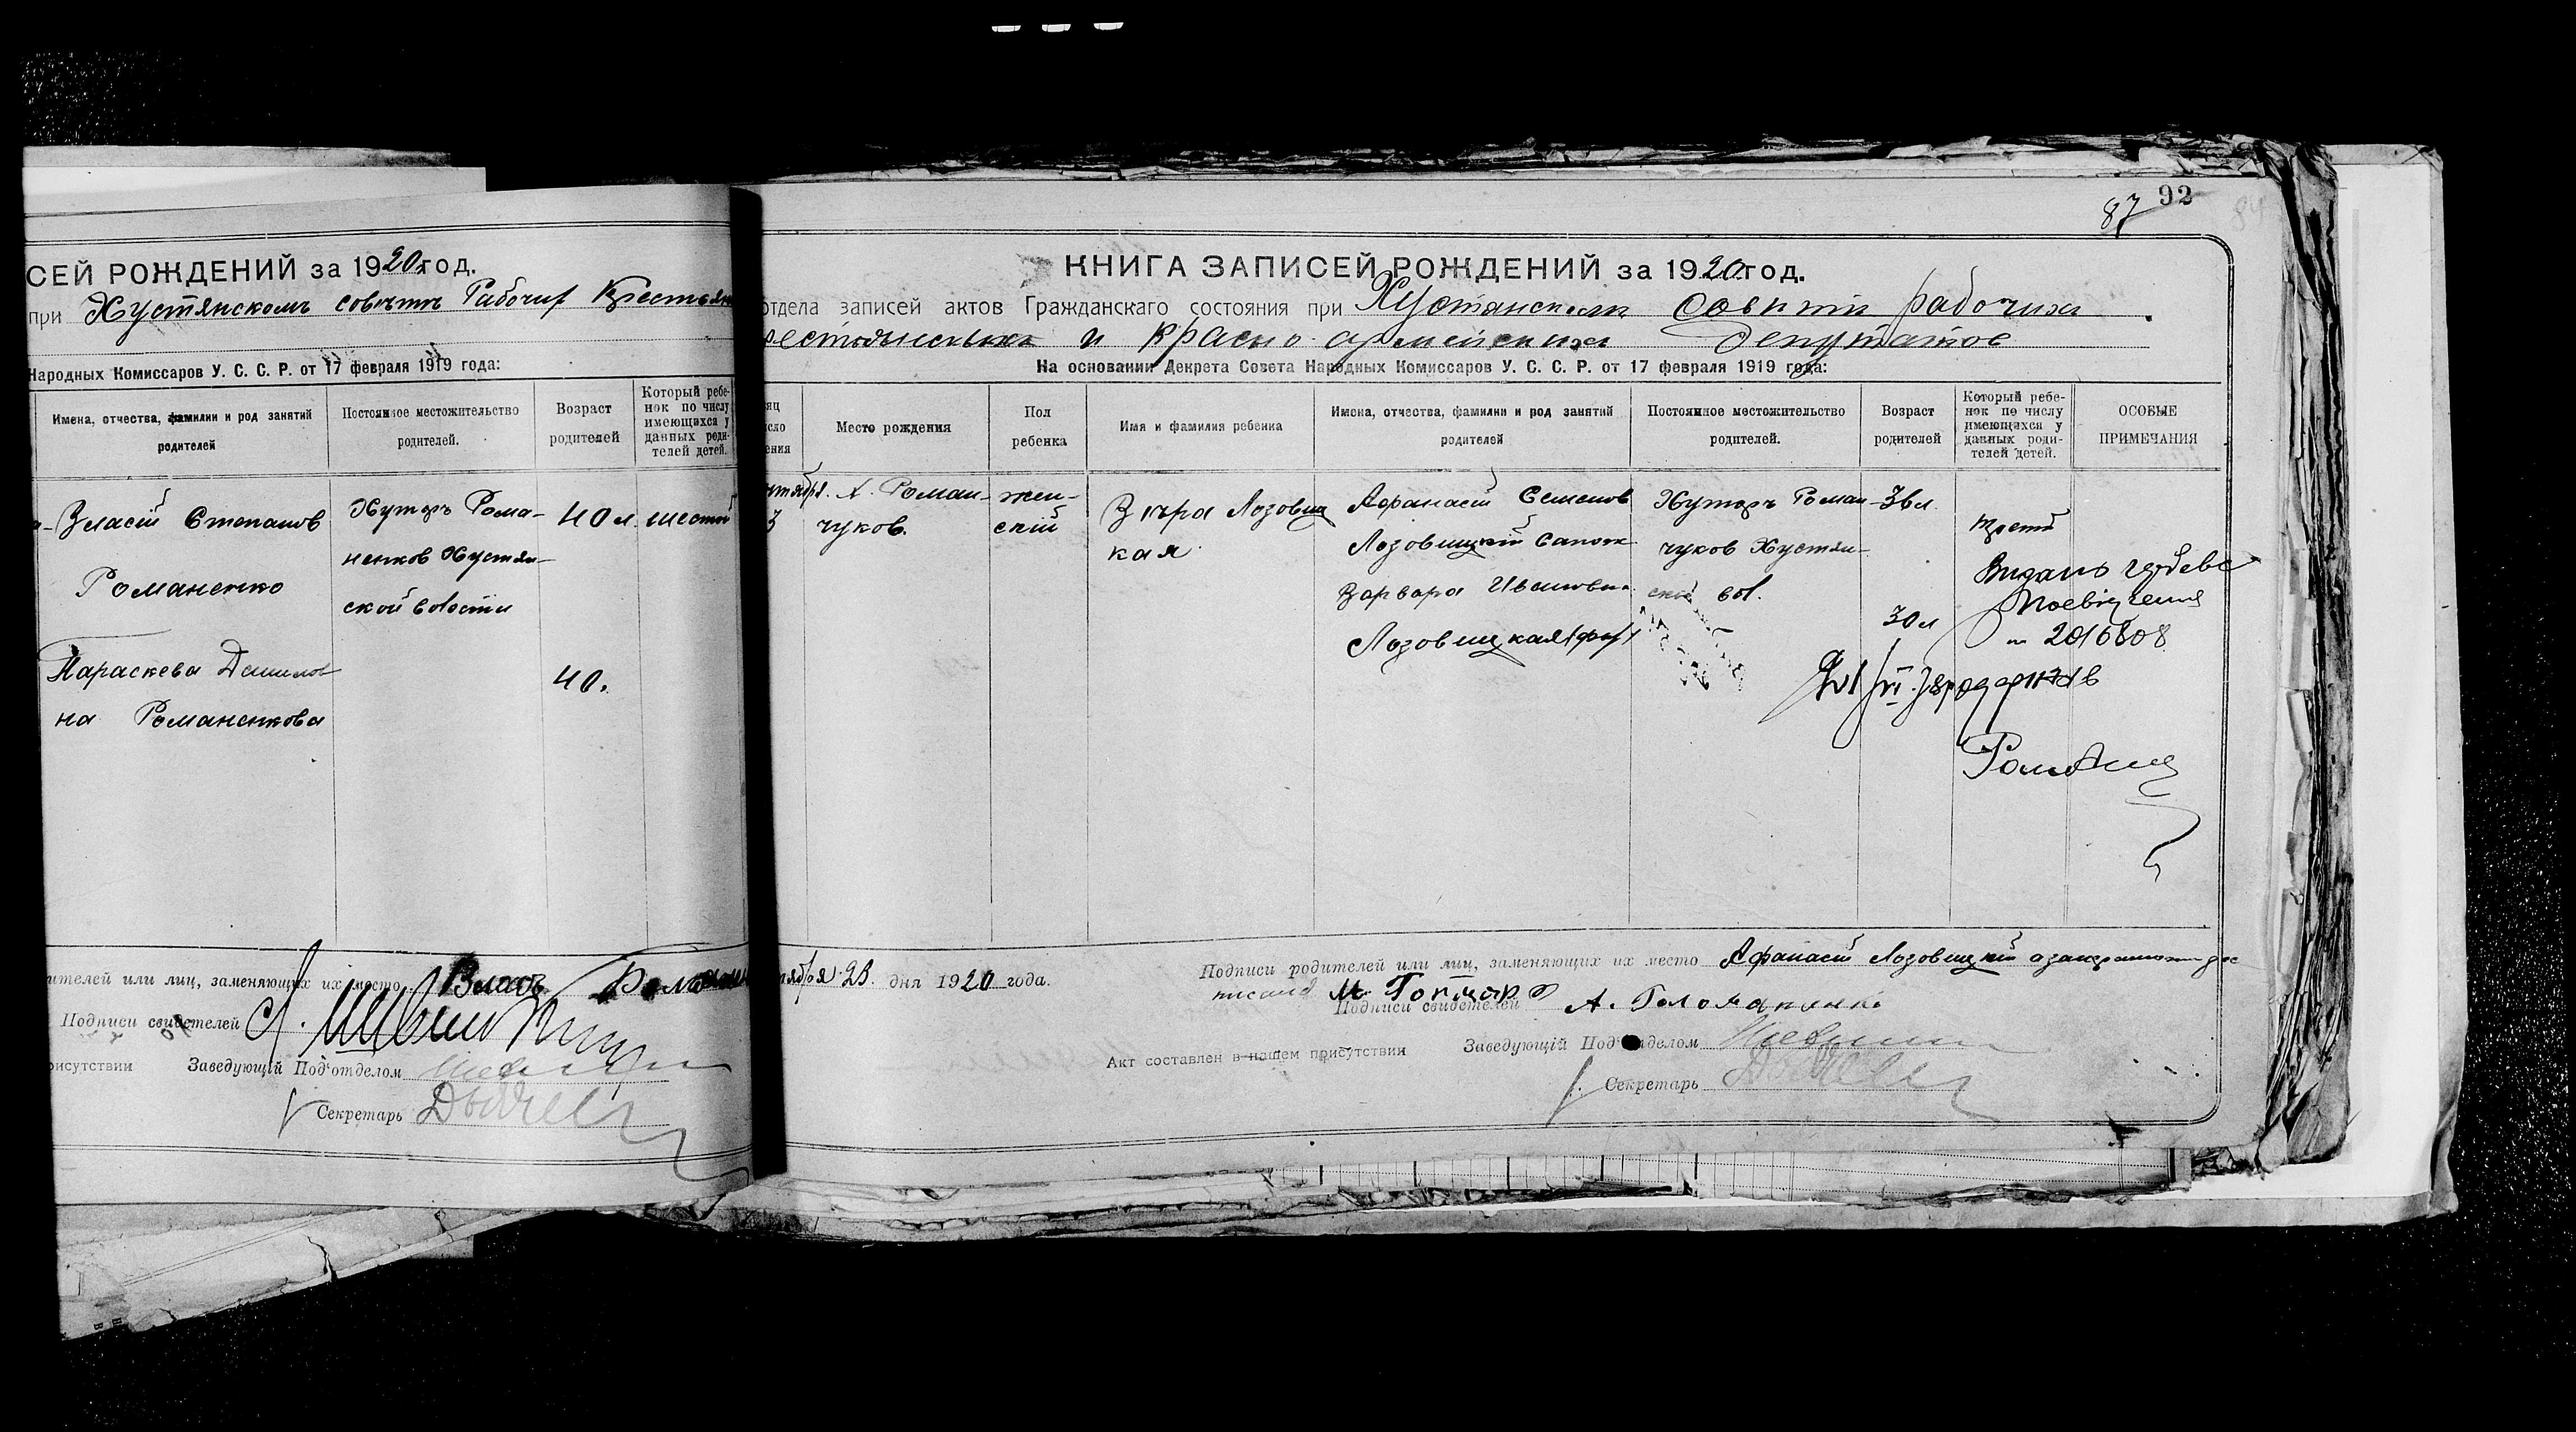 СЕЙ РОЖДЕНИЙ за 1920 год.
при Хустянскомъ совѣтѣ Рабочих Крестьян
Народных Комиссаров У. С. С. Р. от 17 февраля 1919 года:
Имена, отчества, фамилии и род занятий родителей
Постоянное местожительство родителей.
Возраст родителей
Который ребенок по числу имеющихся у данных родителей детей.
Власій Степанов
Романенко
Параскева Данилов
на Романенкова
Хуторъ Рома-
ненков Хустян-
ской волости
40 л.
40.
шестой
ителей или лиц, заменяющих их место Власъ
Подписи свидетелей
рисутствии Заведующій Под'отделом
Секретарь
87 92
КНИГА ЗАПИСЕЙ РОЖДЕНИЙ за 1920 год.
отдела записей актов Гражданскаго состояния при Хустянском Совѣтѣ рабочих
рестьянских и красно-армейских депутатов
На основании Декрета Совета Народных Комиссаров У. С. С. Р. от 17 февраля 1919 года:
Место рождения
Пол ребенка
Имя и фамилия ребенка
Имена, отчества, фамилии и род занятий родителей
Постоянное местожительство родителей.
Возраст родителей
Который ребенок по числу имеющихся у данных родителей детей.
ОСОБЫЕ ПРИМЕЧАНИЯ
нтября
3
х. Роман-
чуков.
жен-
скій
Вѣра Лозовиц
кая
Афанасій Семенов
Лозовицкій
Варвара Ивановна
Лозовицкая
Хуторъ Роман-
чуков Хустян-
ской вол.
36 л.
30 л
третій
2016808
тября 23. дня 1920 года.
Подписи родителей или лиц, заменяющих их место Афанасій Лозовицкій
Подписи свидетелей
Акт составлен в нашем присутствии Заведующій Под'отделом
Секретарь